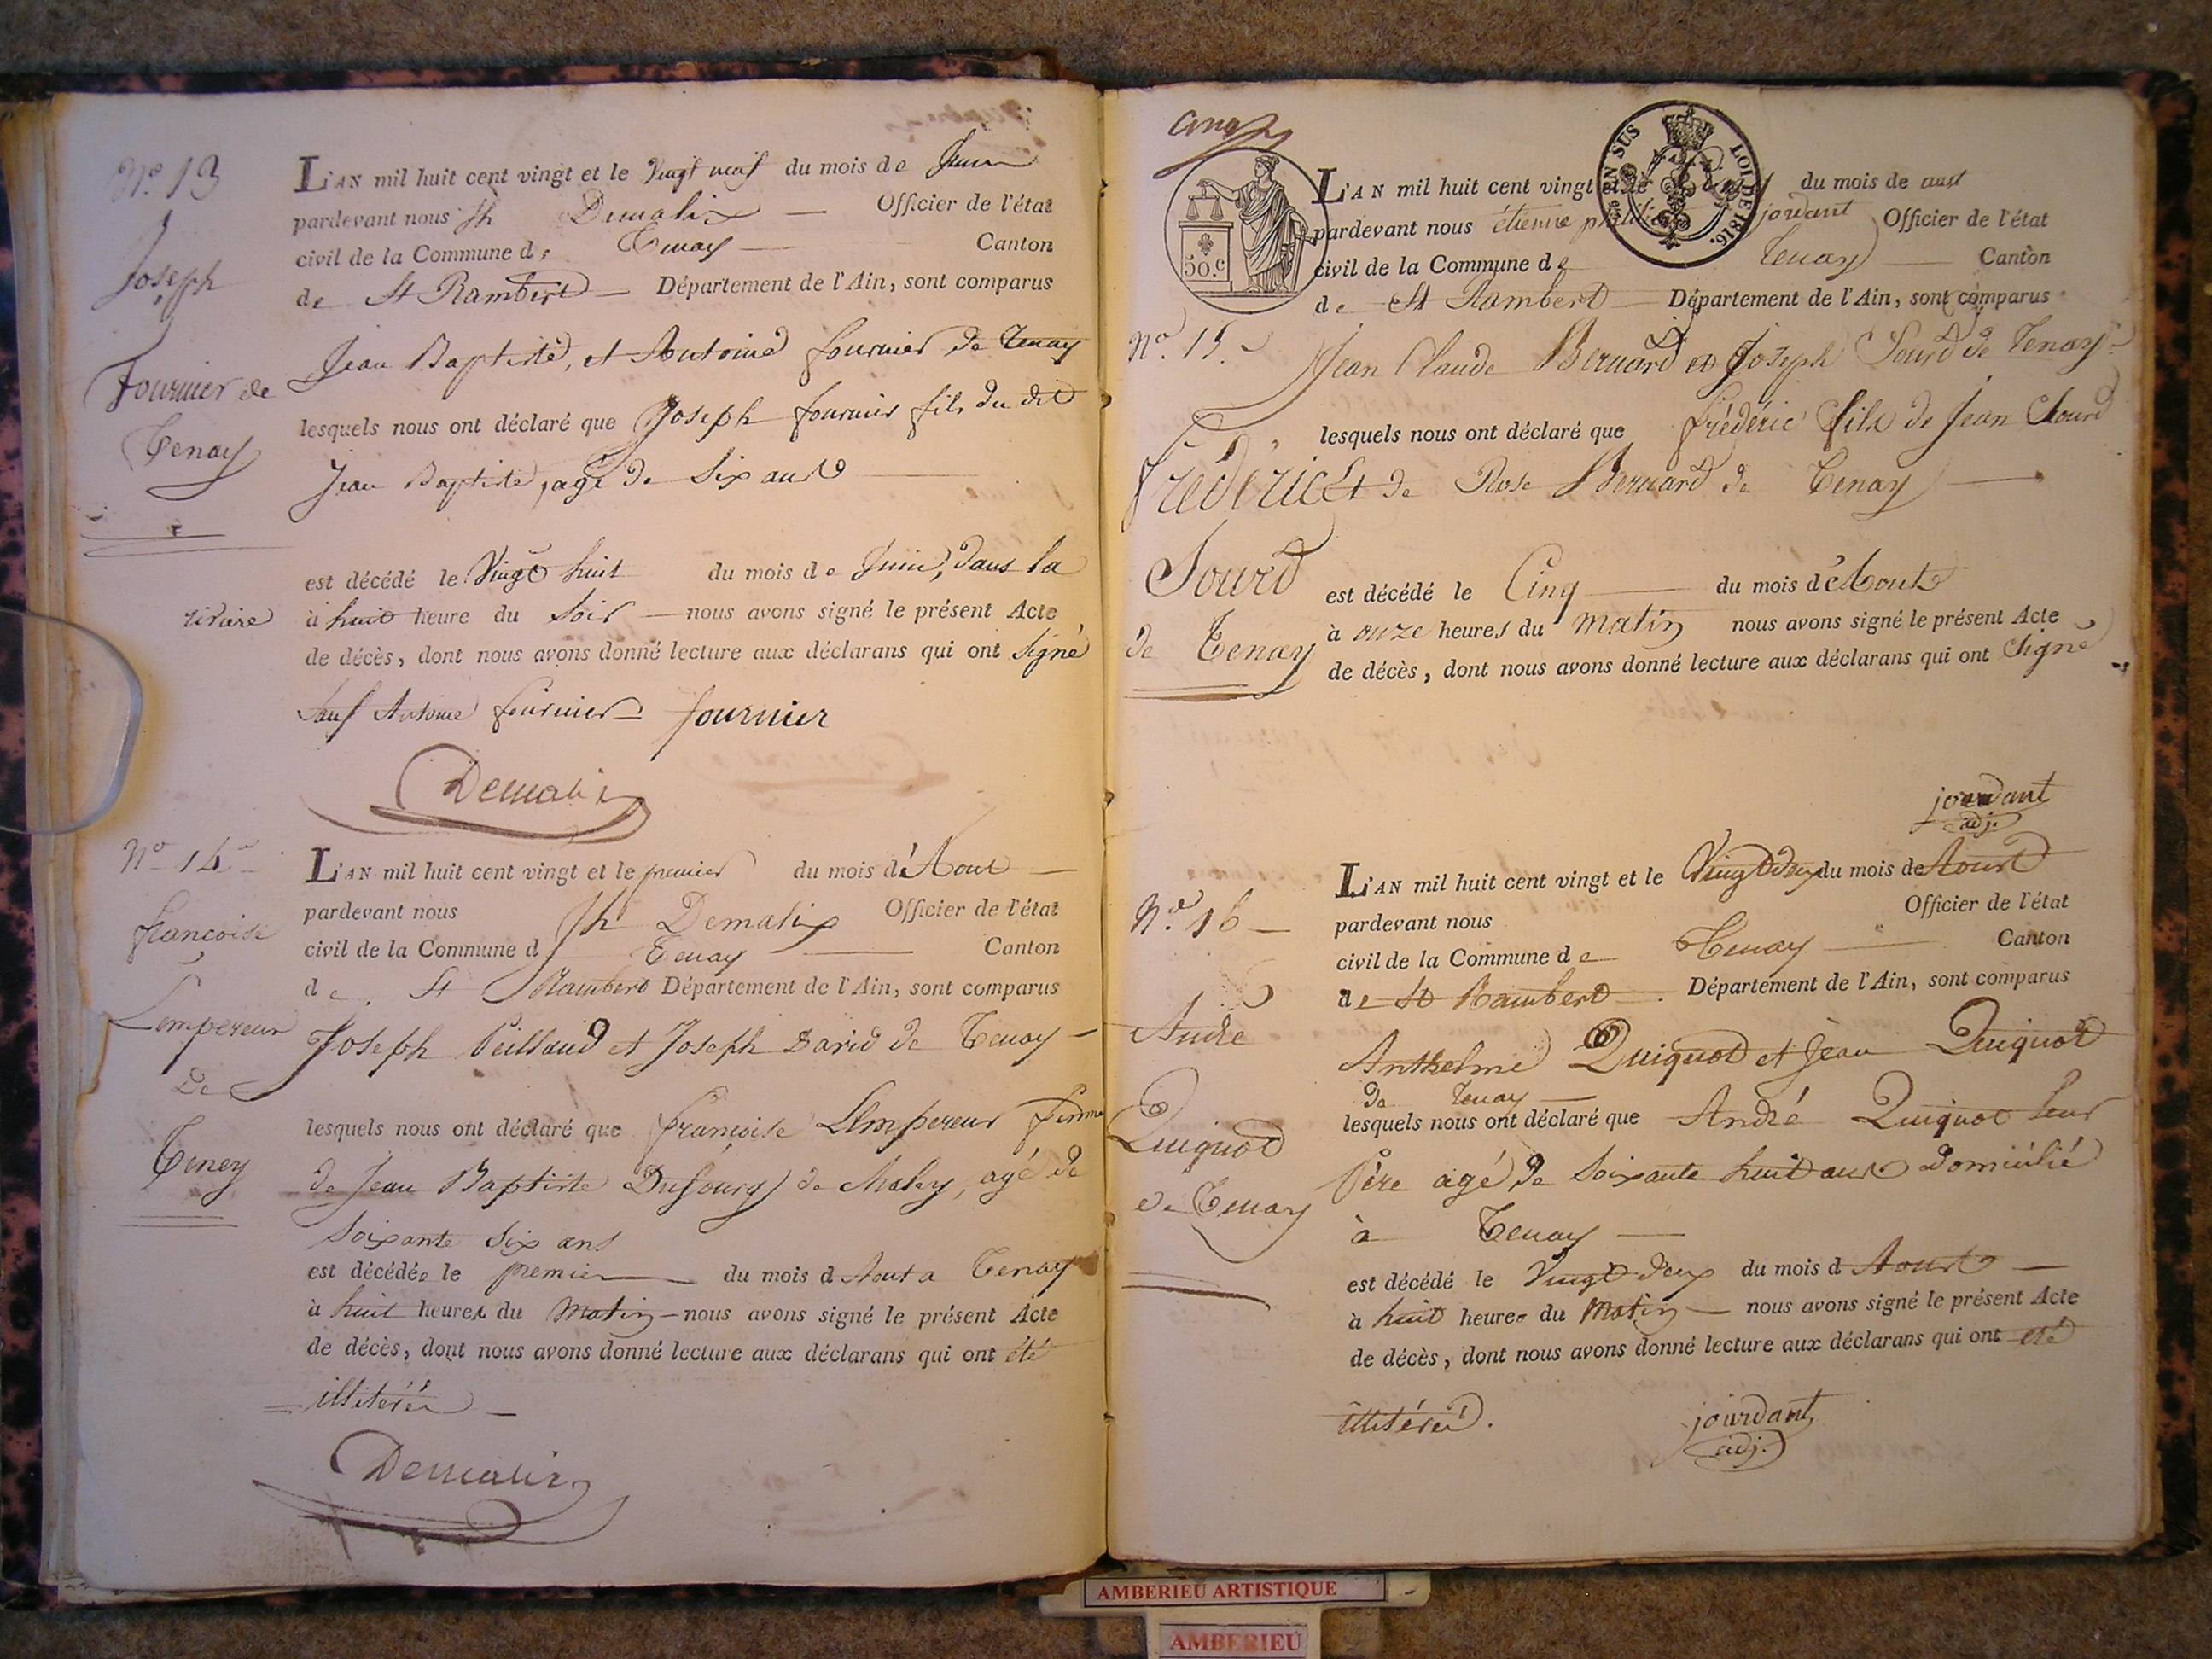 N.o 13
Joseph
Fournier de
Tenay
L'AN mil huit cent vingt et le Vingt neuf du mois de Juin
pardevant nous Jh Demalix Officier de l'état
civil de la Commune de Tenay Canton
de St Rambert Département de l'Ain, sont comparus
Jean Baptiste, et Antoine fournier de Tenay
lesquels nous ont déclaré que Joseph fournier fils du dit
Jean Baptiste, agé de Six ans
est décédé le Vingt huit du mois de Juin, dans la
rivière
à huit heure du Soir nous avons signé le présent Acte
de décès, dont nous avons donné lecture aux déclarans qui ont Signé
Sauf Antoine fournier fournier
Demalix
N.o 14
francoise
Lempereur
De
Teney
L'AN mil huit cent vingt et le premier du mois d'Aout
pardevant nous Jh Demalix Officier de l'état
civil de la Commune d Tenay Canton
de St Rambert Département de l'Ain, sont comparus
Joseph Peillaud et Joseph David de Tenay
lesquels nous ont déclaré que françoise Lempereur femme
de Jean Baptiste Dufourg de agé de
Soixante Six ans
est décédée le premier du mois d Aout a Tenay
à huit heures du Matin nous avons signé le présent Acte
de décès, dont nous avons donné lecture aux déclarans qui ont été
illitérés
Demalix
cinq
50.c
EN SUS
LOI DE 1816.
L'AN mil huit cent vingt et le du mois de aust
pardevant nous étienne jordant Officier de l'état
civil de la Commune de Tenay Canton
de St Rambert Département de l'Ain, sont comparus
N.o 15
Jean Claude Bernard et Joseph Sourd de Tenay
lesquels nous ont déclaré que frédéric fils de Jean Sourd
Frédéric
Et de Rose Bernard de Tenay
Sourd
de Tenay
est décédé le Cinq du mois d'Aout
à onze heures du matin nous avons signé le présent Acte
de décès, dont nous avons donné lecture aux déclarans qui ont Signé
jourdant
adj.
N.o 16
André
Quiquot
de Tenay
L'AN mil huit cent vingt et le Vingt deux du mois de Aoust
pardevant nous Officier de l'état
civil de la Commune de Tenay Canton
de St Rambert Département de l'Ain, sont comparus
Anthelme Quiquot et Jean Quiquot
de Tenay
lesquels nous ont déclaré que André Quiquot leur
Père agé de Soixante huit ans Domicilié
à Tenay
est décédé le Vingt deux du mois d Aoust
à huit heures du Matin nous avons signé le présent Acte
de décès, dont nous avons donné lecture aux déclarans qui ont été
illitérés.
jourdant
adj.
AMBERIEU ARTISTIQUE
AMBERIEU